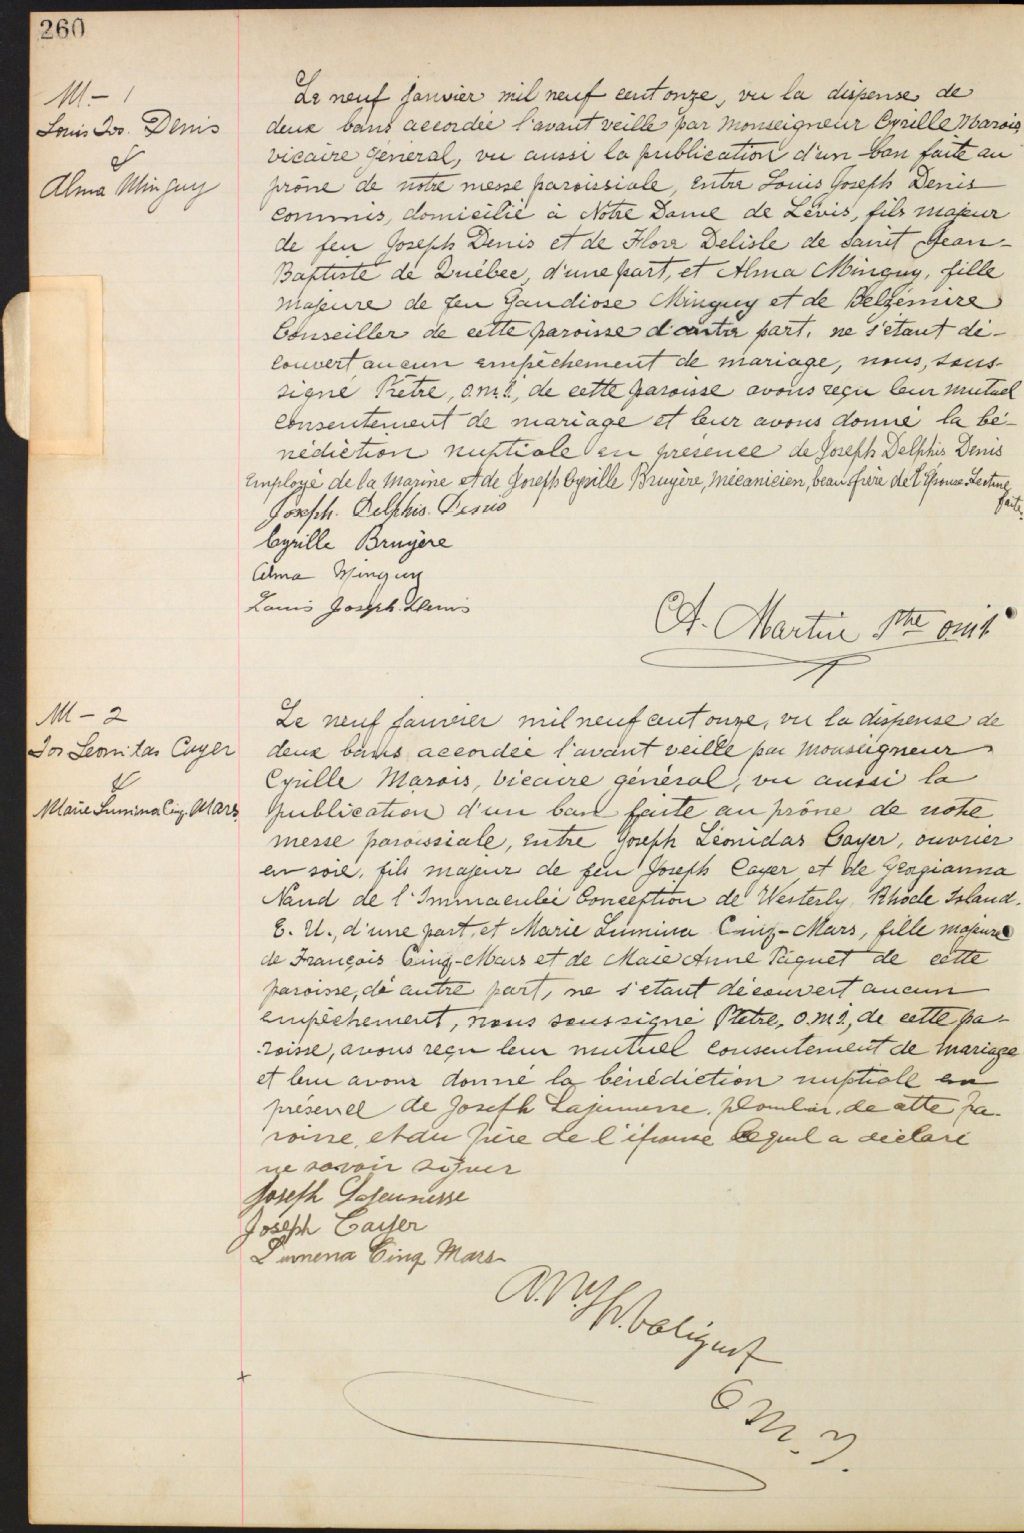 260
M.- 1
Louis Jos. Denis
&
Alma Minguy
Le neuf janvier mil neuf cent onze, vu la dispense de
deux bans accordée l'avant veille par Monseigneur Cyrille Marois
vicaire général, vu aussi la publication d'un ban faite au
prône de notre messe paroissiale, entre Louis Joseph Denis
commis, domicilié à Notre Dame de Lévis, fils majeur
de feu Joseph Denis et de Flore Delisle de Saint Jean-
Baptiste de Québec, d'une part, et Alma Minguy, fille
majeure de feu Gaudiose Minguy et de Belzémire
Conseiller de cette paroisse d'autre part, ne s'étant dé-
couvert aucun empêchement de mariage, nous, sous-
signé Prêtre, o.m.i., de cette paroisse avons reçu leur mutuel
consentement de mariage et leur avons donné la bé-
nédiction nuptiale en présence de Joseph Delphis Denis
employé de la marine et de Joseph Cyrille Bruyère, mécanicien, beau frère de l'Épouse. Lecture
faite.
Joseph. Delphis. Denis
Cyrille Bruyère
Alma Minguy
Louis Joseph Denis
A. Martin Ptre omi
M - 2
Jos Leonitas Cayer
&
Marie Lumina Cinq-Mars
Le neuf janvier mil neuf cent onze, vu la dispense de
deux bans accordée l'avant veille par Monseigneur
Cyrille Marois, vicaire général, vu aussi la
publication d'un ban faite au prône de notre
messe paroissiale, entre Joseph Léonidas Cayer, ouvrier
en soie, fils majeur de feu Joseph Cayer et de Georgianna
Naud de l'Immaculée Conception de Westerly, Rhode Island.
E. U., d'une part, et Marie Lumina Cinq-Mars, fille majeure
de François Cinq-Mars et de Maie Anne Paquet de cette
paroisse, d'autre part, ne s'étant découvert aucun
empêchement, nous soussigné Prêtre, o.m.i., de cette pa-
roisse, avons reçu leur mutuel consentement de mariage
et leur avons donné la bénédiction nuptiale en
présence de Joseph Lajeunesse, plombier, de cette pa-
roisse, et du père de l'épouse lequel a déclaré
ne savoir signer
Joseph Lajeunesse
Joseph Cayer
Lumena Cinq Mars
Valiquet
O M. I.